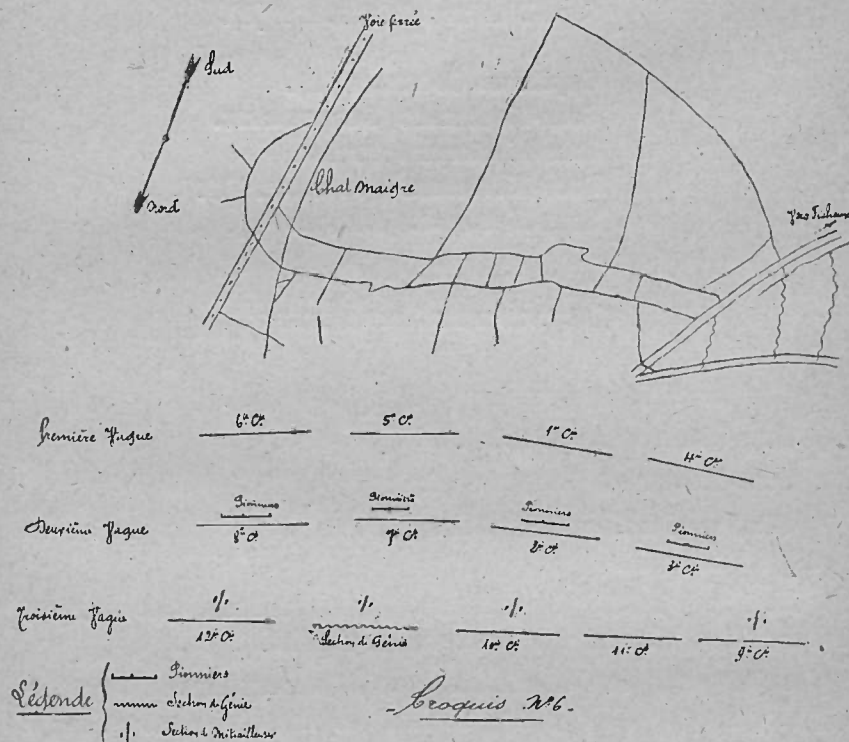 Voie ferrée
Sud
Nord
Chal Maigre
Vers
Première Vague
6e Cie
5e Cie
1re Cie
4e Cie
Deuxième Vague
Pionniers
Pionniers
Pionniers
Pionniers
8e Cie
7e Cie
2e Cie
3e Cie
Troisième Vague
12e Cie
Section de Génie
10e Cie
11e Cie
9e Cie
Légende
Pionniers
Section de Génie
Section de Mitrailleuses
- Croquis N°6 -